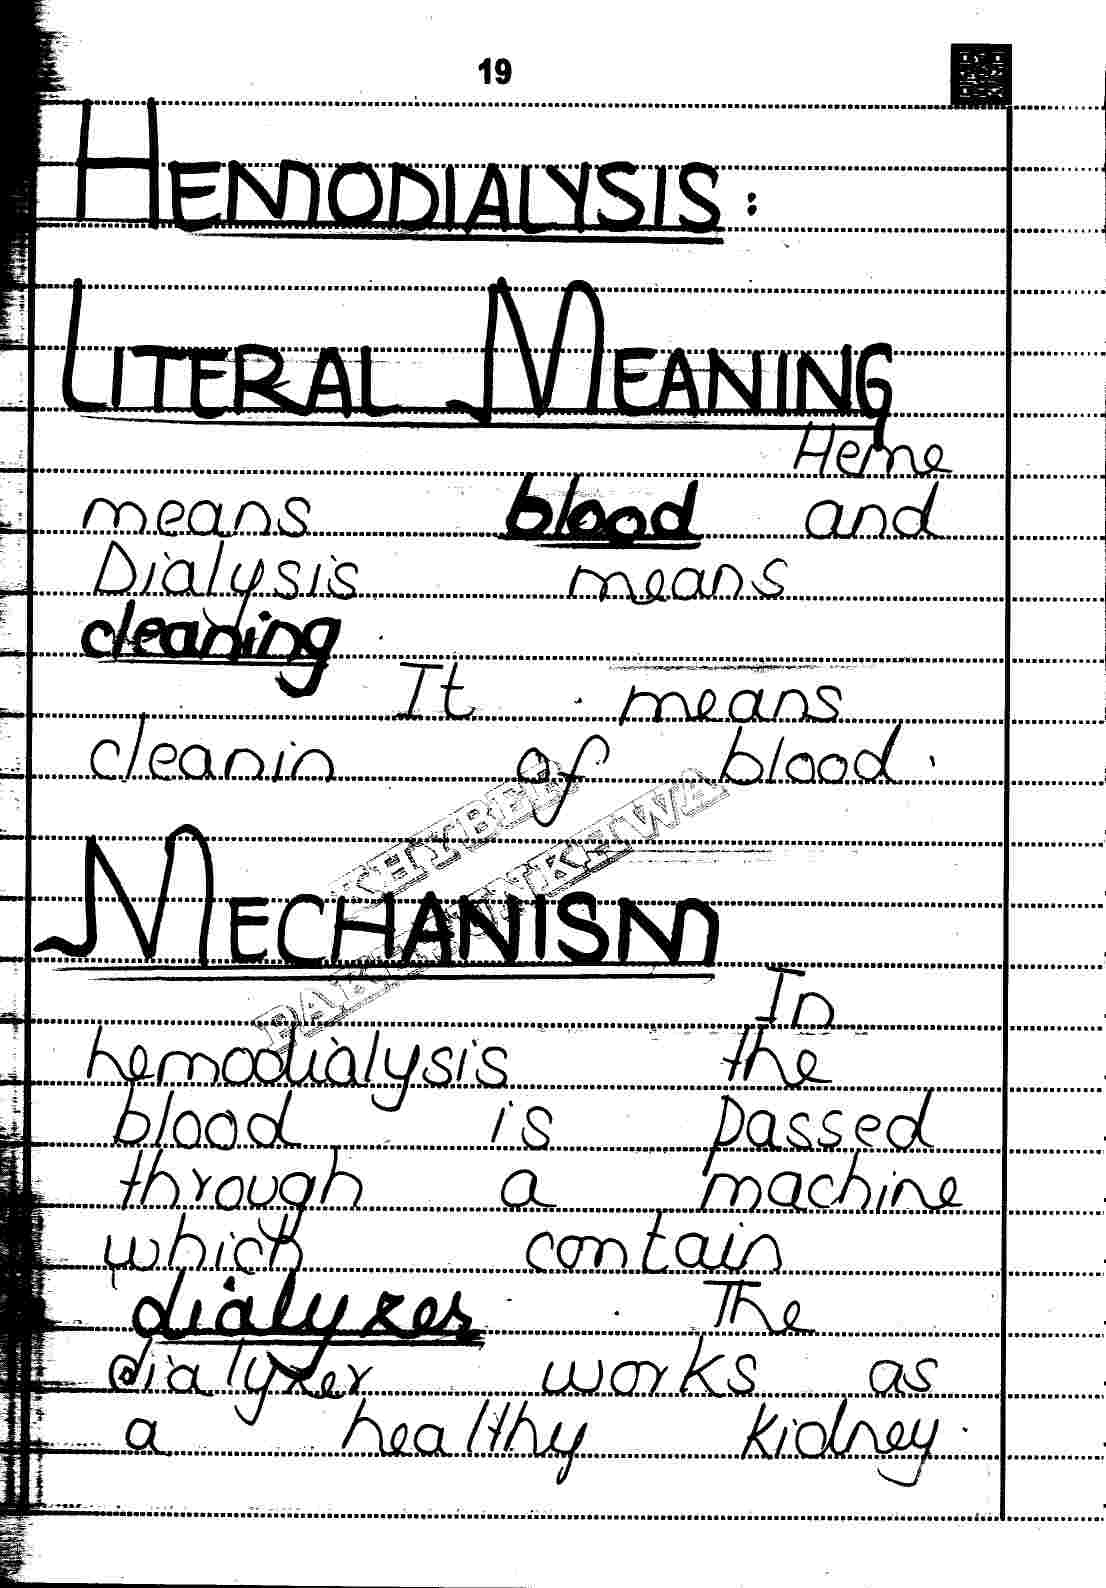 19
HEMODIALYSIS:
LITERAL MEANING
Heme
means blood and
Dialysis means
cleaning
It means
cleanin of blood.
KHYBER
PAKHTUNKHWA
MECHANISM
In
hemodialysis the
blood is passed
through a machine
which contain
dialyzes. The
dialyzer works as
a healthy kidney.